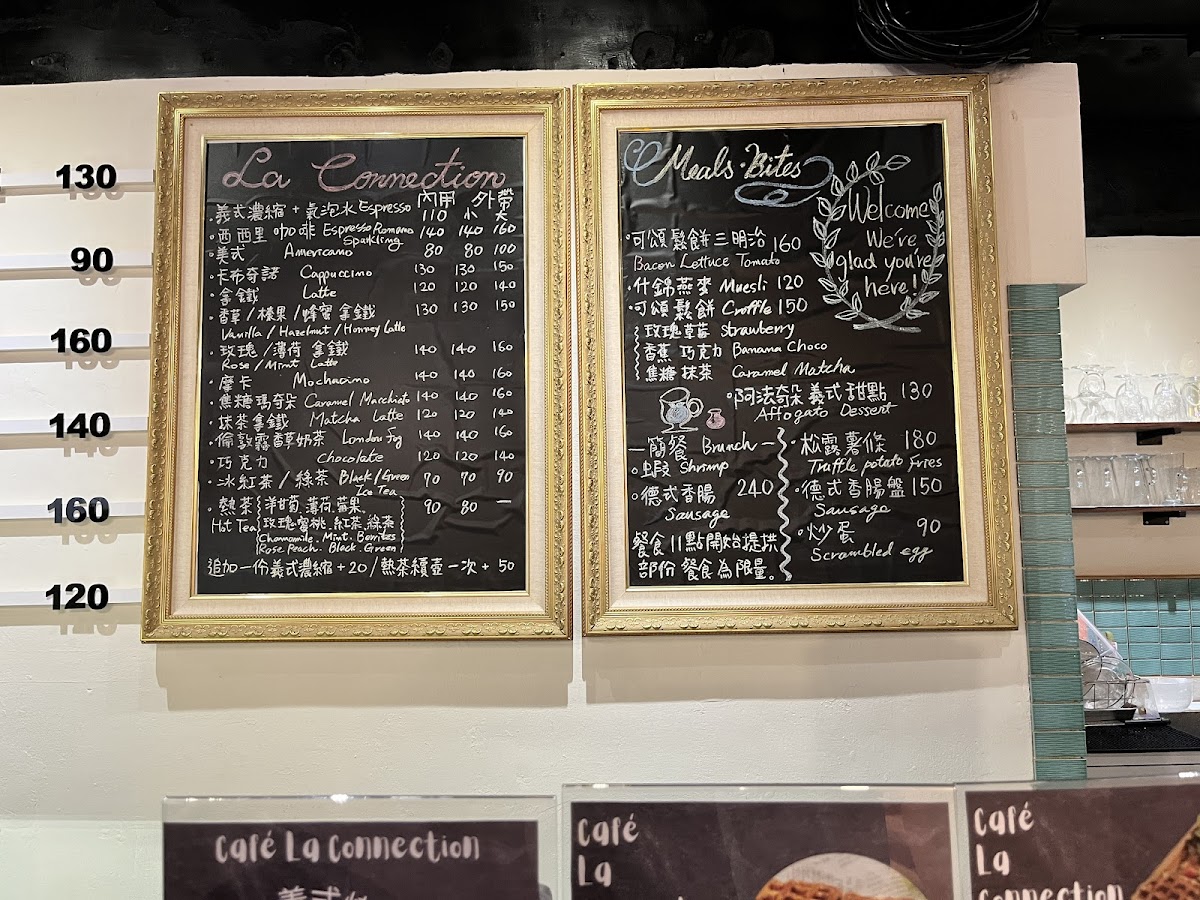 130
90
160
140
160
120
La Connection
內用 外帶
·義式濃縮 + 氣泡水 Espresso 110 小 大
·西西里咖啡 Espresso Romano 140 140 160
Sparkling
·美式 Americano 80 80 100
·卡布奇諾 Cappuccino 130 130 150
·拿鐵 Latte 120 120 140
·香草/榛果/蜂蜜 拿鐵 130 130 150
Vanilla / Hazelnut / Honney Latte
·玫瑰/薄荷 拿鐵 140 140 160
Rose / Mint Latte
·摩卡 Mochacino 140 140 160
·焦糖瑪奇朵 Caramel Macchiato 140 140 160
·抹茶拿鐵 Matcha Latte 120 120 140
·倫敦霧香草奶茶 London Fog 140 140 160
·巧克力 Chocolate 120 120 140
·冰紅茶/綠茶 Black/Green 70 70 90
Ice Tea
·熱茶 洋甘菊.薄荷.蘋果 90 80 —
Hot Tea 玫瑰蜜桃.紅茶.綠茶
Chamomile. Mint. Berries
Rose Peach. Black. Green
追加一份義式濃縮+20/熱茶續壺一次+50
Meals·Bites
Welcome
We're
glad you're
here!
·可頌鬆餅三明治 160
Bacon Lettuce Tomato
·什錦燕麥 Muesli 120
·可頌鬆餅 Croffle 150
玫瑰草莓 Strawberry
香蕉 巧克力 Banana Choco
焦糖 抹茶 Caramel Matcha
·阿法奇朵 義式甜點 130
Affogato Dessert
—簡餐 Brunch—
·蝦 Shrimp
·德式香腸 240
Sausage
餐食11點開始提拱
部份餐食為限量。
·松露薯條 180
Truffle potato Fries
·德式香腸盤 150
Sausage
·炒蛋 90
Scrambled egg
Café La Connection
義式
Café
La
Café
La
Connection